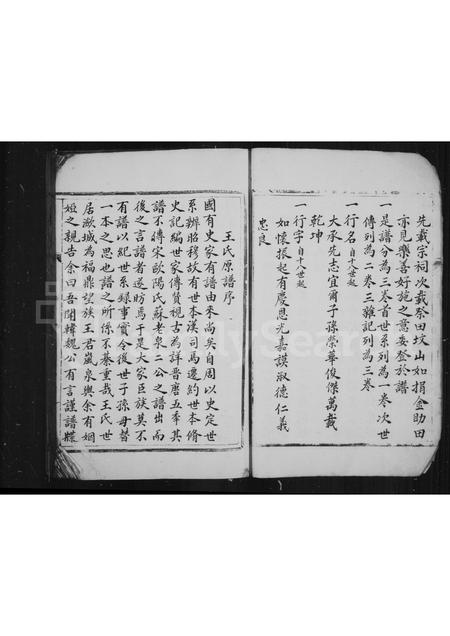 先載宗祠次載祭田坟山如捐金助田
亦見樂善好施之意安登於譜
一是譜分為三卷首世系列為一卷次世
傳列為二卷三雜記列為三卷
一行名自十八世起
大承先志宜爾子孫榮華俊傑萬載
乾坤
一行字自十八世起
如懷振起有慶恩光嘉謨淑德仁義
忠良
王氏原譜序
國有史家有譜由來尚矣自周以史定世
系辦昭穆故有世本漢司馬遷約世本脩
史記編世家傳贊稽古為詳晉唐五季其
譜不傳宋歐陽氏蘇老泉二公之譜出而
後之言譜者遂昉焉于是大家臣族莫不
有譜以紀世系録事實令後世子孫毋替
一本之思也譜之所係不綦重哉王氏世
居澉城為福鼎望族王君嵐泉與余有姻
婭之親告余曰吾聞韓魏公有言謹譜牒